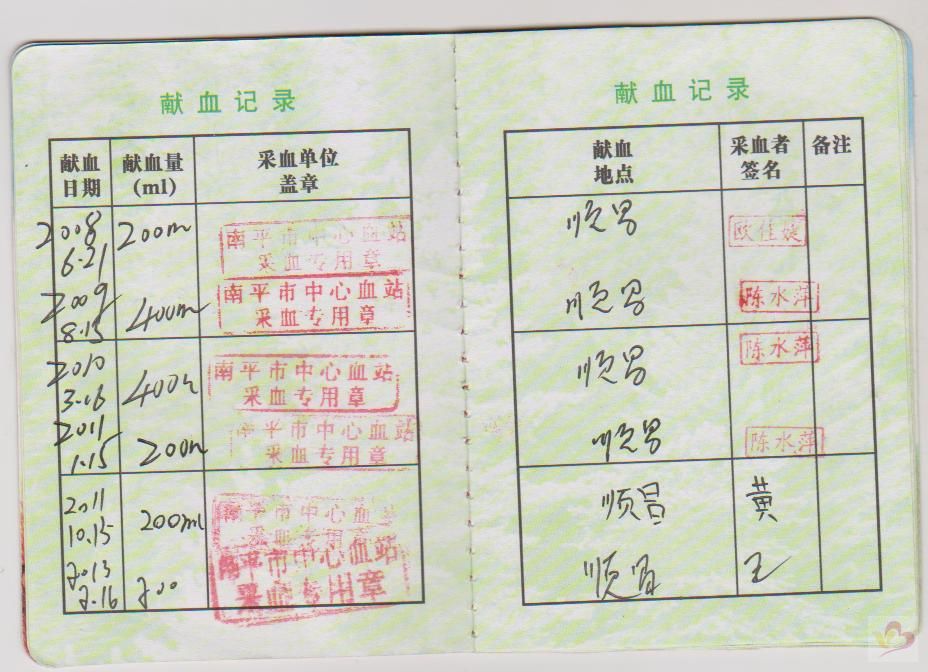 献血记录
献血
日期
献血量
(ml)
采血单位
盖章
2008
6.21
200m
南平市中心血站
采血专用章
2009
8.15
400m
南平市中心血站
采血专用章
2010
3.16
400m
南平市中心血站
采血专用章
2011
1.15
200m
南平市中心血站
采血专用章
2011
10.15
200ml
南平市中心血站
采血专用章
2013
2.16
200
南平市中心血站
采血专用章
献血记录
献血
地点
采血者
签名
备注
顺昌
顺昌
陈水萍
顺昌
陈水萍
顺昌
陈水萍
顺昌
黄
顺昌
王